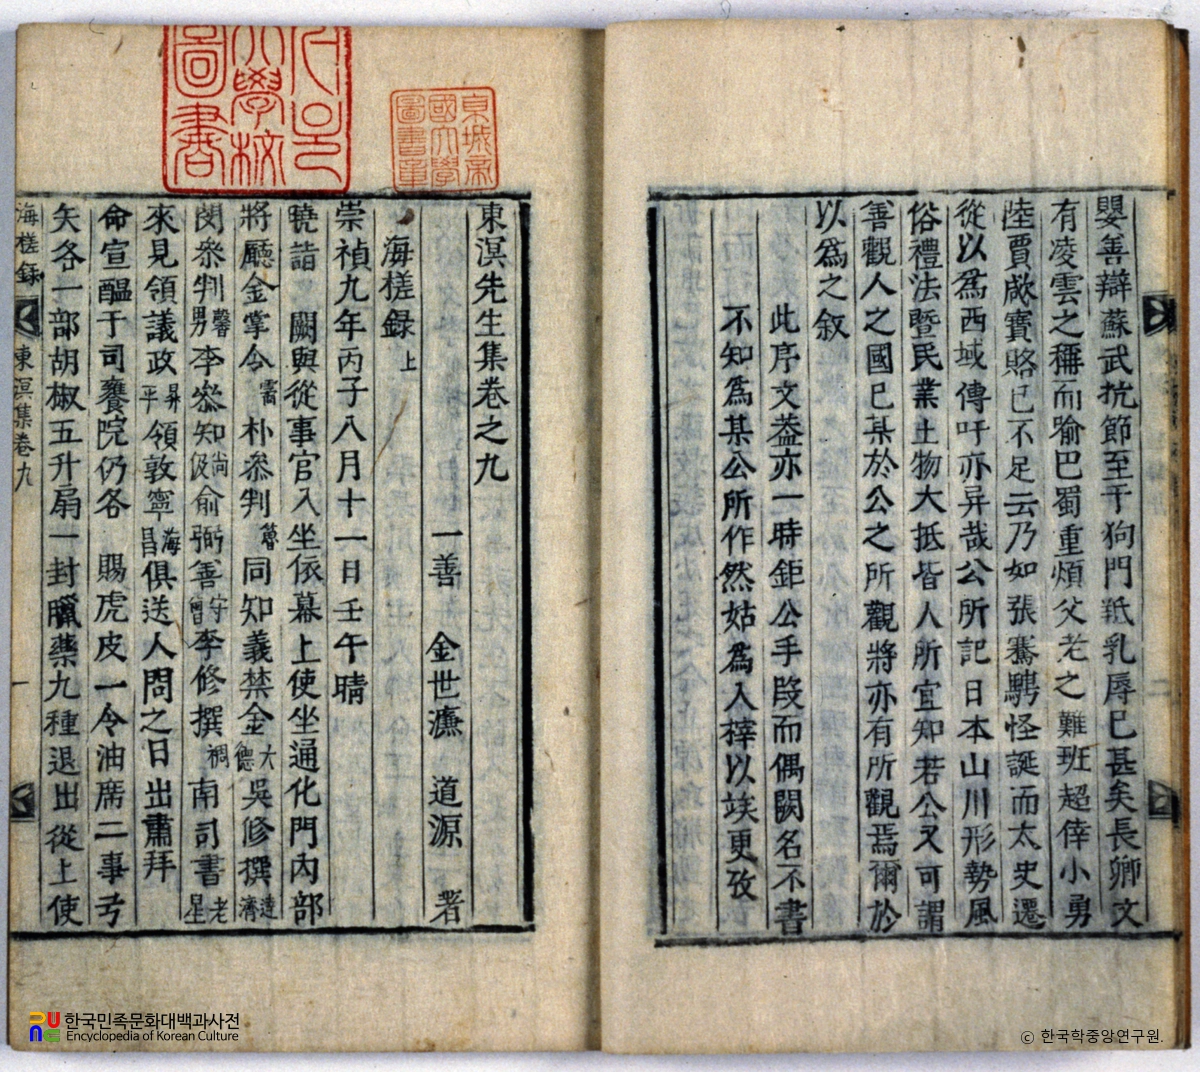 嬰善辯蘇武抗節至于狗門羝乳辱已甚矣長卿文
有凌雲之稱而喩巴蜀重煩父老之難班超倖小勇
陸賈歇寶賂已不足云乃如張騫騁怪誕而太史遷
從以爲西域傳吁亦异哉公所記日本山川形勢風
俗禮法曁民業土物大抵皆人所宜知若公又可謂
善觀人之國已某於公之所觀將亦有所觀焉爾於
以爲之叙
此序文盖亦一時鉅公手段而偶闕名不書
不知爲某公所作然姑爲入梓以竢更攷
東溟先生集卷之九
一善 金世濂 道源 著
海槎録 上
崇禎九年丙子八月十一日壬午晴
曉詣 闕與從事官入坐依幕上使坐通化門內部
將廳金掌令霱朴叅判𥳑同知義禁金大德吳修撰達濟
閔叅判馨男李叅知尚伋俞弼善守曾李修撰裯南司書老星
來見領議政昇平領敦寧海昌俱送人問之日出肅拜
命宣醞于司饔院仍各 賜虎皮一令油席二事弓
矢各一部胡椒五升扇一封臘藥九種退出從上使
海槎録 東溟集卷九 一
東城帝國大學圖書章
大學校圖書
한국민족문화대백과사전
Encyclopedia of Korean Culture
ⓒ 한국학중앙연구원.